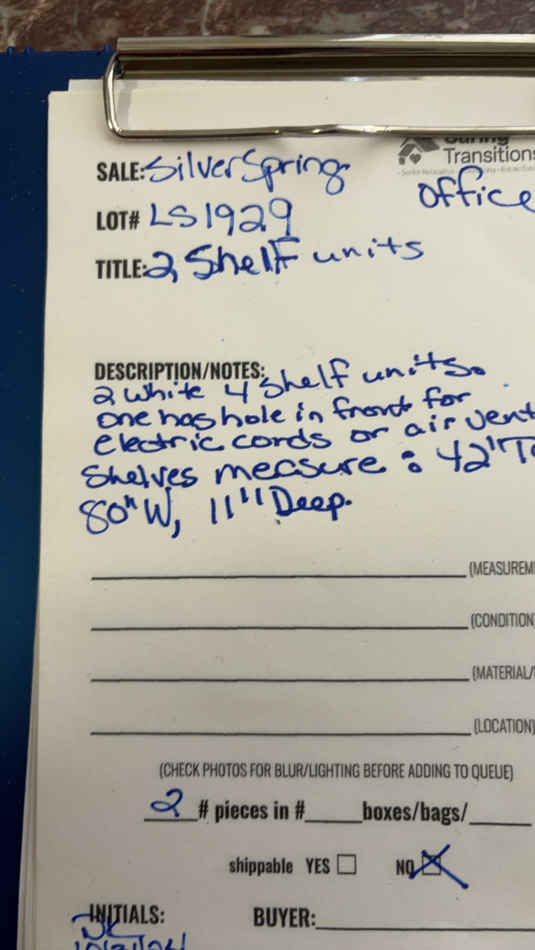 Caring
Transitions
SALE: SilverSpring
Office
LOT# LS1929
TITLE: 2 Shelf units
DESCRIPTION/NOTES:
2 white 4 shelf units.
one has hole in front for
electric cords or air vent
Shelves measure: 42"T
80"W, 11" Deep.
(MEASUREM
(CONDITION
(MATERIAL/
(LOCATION)
(CHECK PHOTOS FOR BLUR/LIGHTING BEFORE ADDING TO QUEUE)
2 # pieces in #____boxes/bags/____
shippable YES ☐ NO ☒
INITIALS: BUYER: